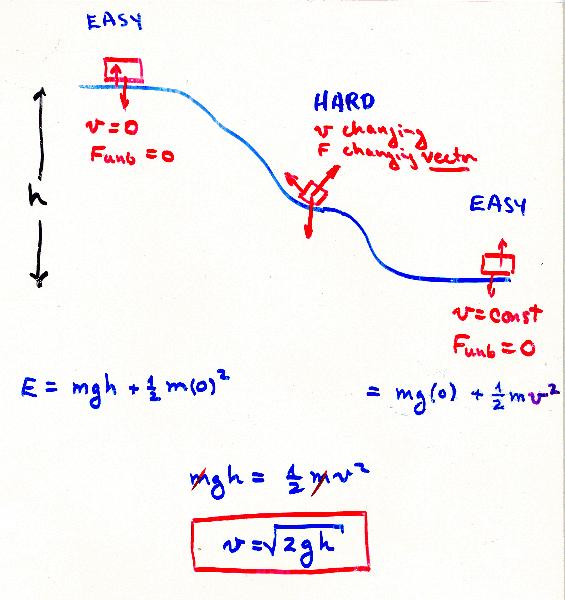 EASY
v=0
Funb = 0
h
HARD
v changing
F changing vector
EASY
v=const
Funb = 0
E = mgh + ½ m(0)²
= mg(0) + ½ mv²
mgh = ½ mv²
v=√2gh